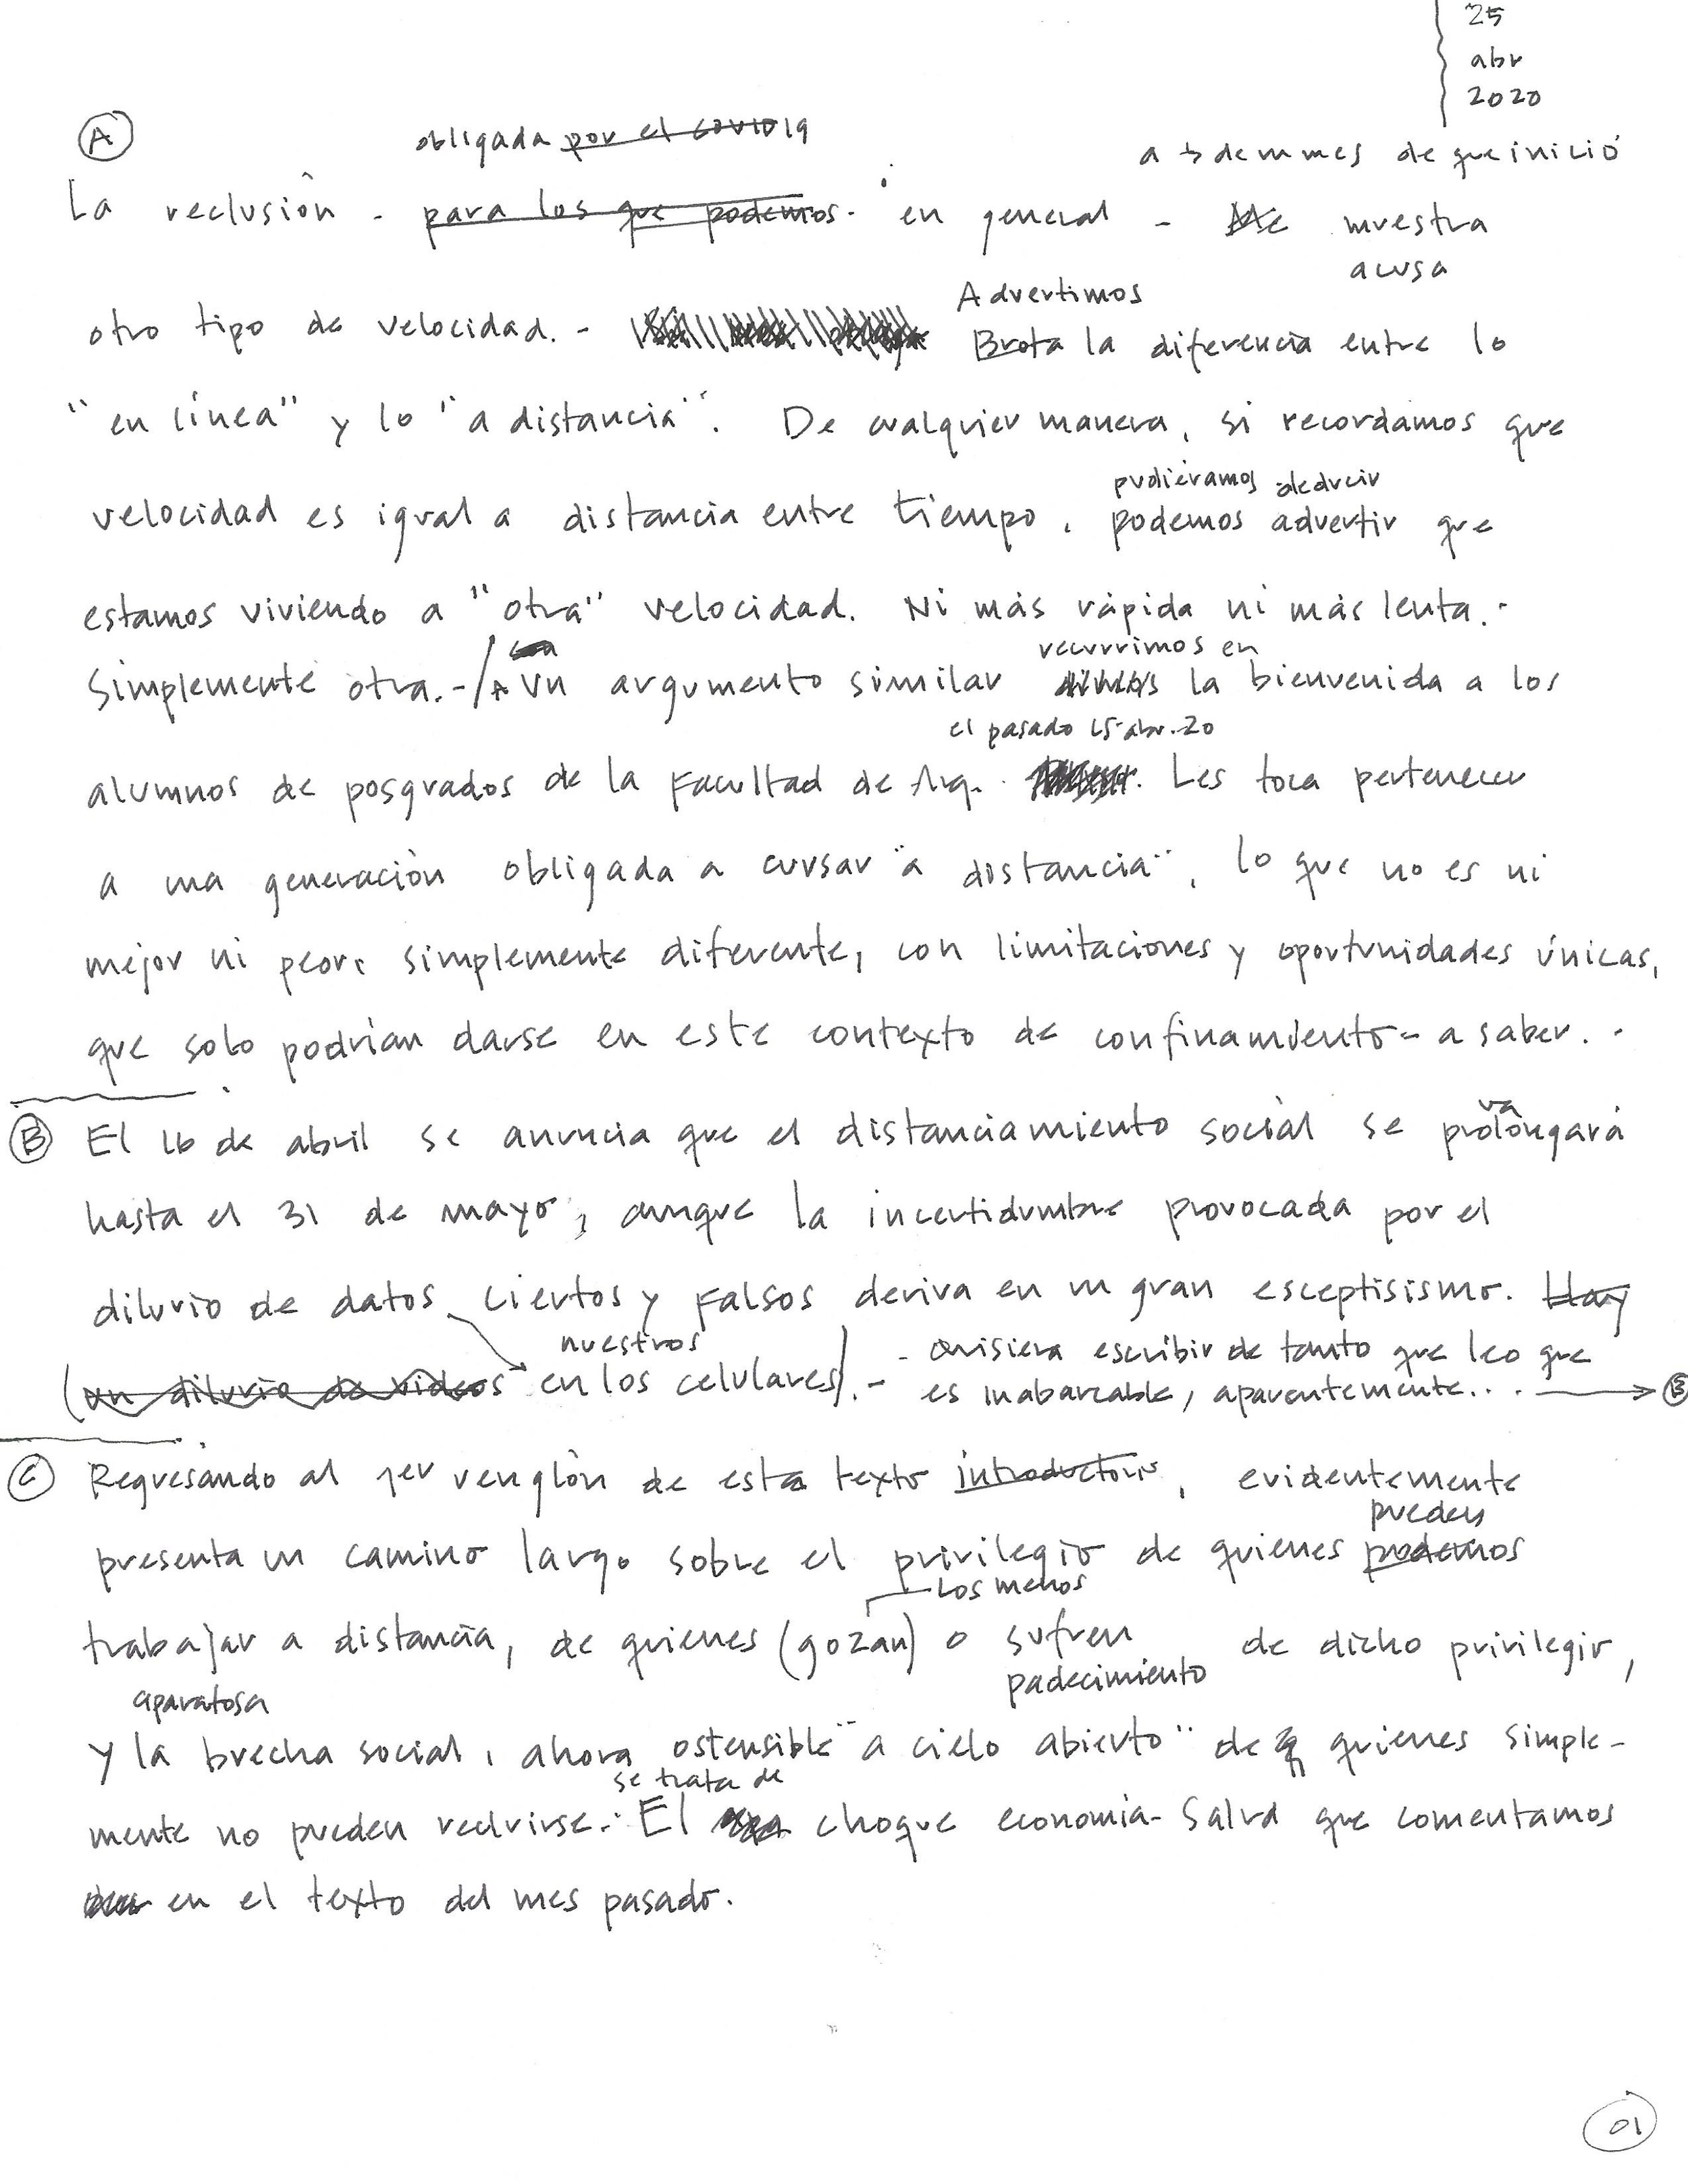 25
abr
2020
A
obligada por el COVID19
a + de un mes de que inició
La reclusión - para los que podemos - en general - Me muestra
acusa
Advertimos
otro tipo de velocidad. - Brota la diferencia entre lo
"en línea" y lo "a distancia". De cualquier manera, si recordamos que
pudiéramos deducir
velocidad es igual a distancia entre tiempo, podemos advertir que
estamos viviendo a "otra" velocidad. Ni más rápida ni más lenta.-
recurrimos en
Simplemente otra.-/A Un argumento similar dimos la bienvenida a los
el pasado 15.abr.20
alumnos de posgrados de la Facultad de Arq. Les toca pertenecer
a una generación obligada a cursar "a distancia", lo que no es ni
mejor ni peor, simplemente diferente, con limitaciones y oportunidades únicas,
que solo podrían darse en este contexto de confinamiento - a saber. -
va
B El 16 de abril se anuncia que el distanciamiento social se prolongará
hasta el 31 de mayo, aunque la incertidumbre provocada por el
diluvio de datos ciertos y falsos deriva en un gran esceptisismo. Hay
nuestros
(un diluvio de videos en los celulares).- - Quisiera escribir de tanto que leo que
es inabarcable, aparentemente... B
C Regresando al 1er renglón de esta texto introductorio, evidentemente
pueden
presenta un camino largo sobre el privilegio de quienes podemos
Los menos
trabajar a distancia, de quienes (gozan) o sufren de dicho privilegio,
padecimiento
aparatosa
y la brecha social, ahora ostensible "a cielo abierto" de q quienes simple-
se trata de
mente no pueden recluirse.- El choque economía-salud que comentamos
en el texto del mes pasado.
01